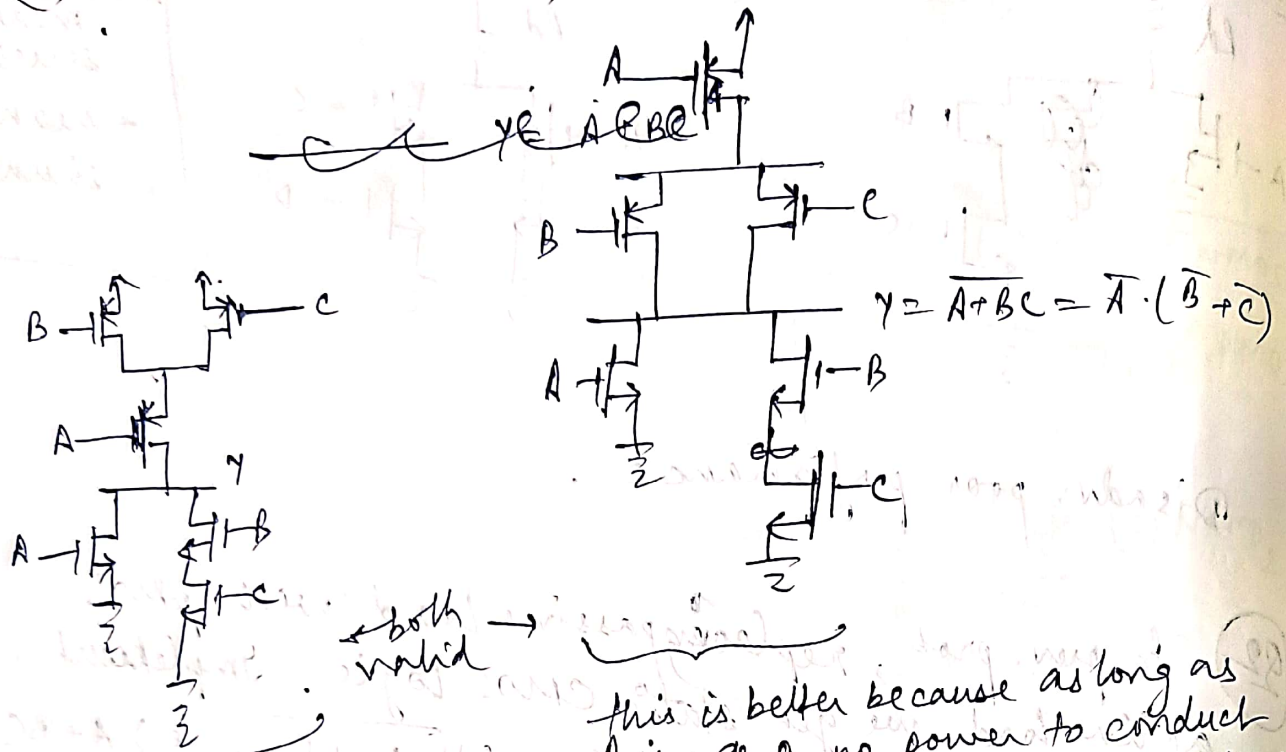 A
B
C
Y = \overline{A+BC} = \overline{A}·(\overline{B}+\overline{C})
A
B
C
B
C
A
Y
A
B
C
← both →
valid
this is better because as long as
power to conduct